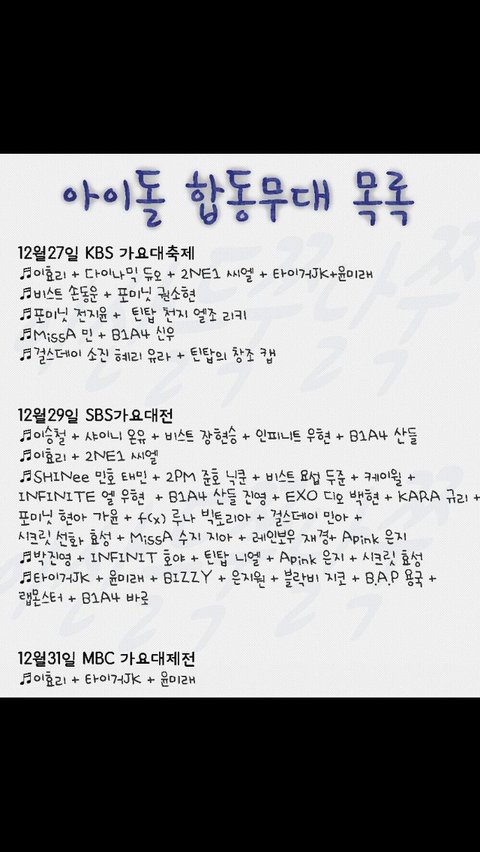 아이돌 합동무대 목록
12월27일 KBS 가요대축제
♬이효리 + 다이나믹 듀오 + 2NE1 씨엘 + 타이거JK+윤미래
♬비스트 손동운 + 포미닛 권소현
♬포미닛 전지윤 + 틴탑 천지 엘조 리키
♬MissA 민 + B1A4 신우
♬걸스데이 소진 혜리 유라 + 틴탑의 창조 캡
12월29일 SBS가요대전
♬이승철 + 샤이니 온유 + 비스트 장현승 + 인피니트 우현 + B1A4 산들
♬이효리 + 2NE1 씨엘
♬SHINee 민호 태민 + 2PM 준호 닉쿤 + 비스트 요섭 두준 + 케이윌 +
INFINITE 엘 우현 + B1A4 산들 진영 + EXO 디오 백현 + KARA 규리 +
포미닛 현아 가윤 + f(x) 루나 빅토리아 + 걸스데이 민아 +
시크릿 선화 효성 + MissA 수지 지아 + 레인보우 재경+ Apink 은지
♬박진영 + INFINIT 호야 + 틴탑 니엘 + Apink 은지 + 시크릿 효성
♬타이거JK + 윤미래 + BIZZY + 은지원 + 블락비 지코 + B.A.P 용국 +
랩몬스터 + B1A4 바로
12월31일 MBC 가요대제전
♬이효리 + 타이거JK + 윤미래